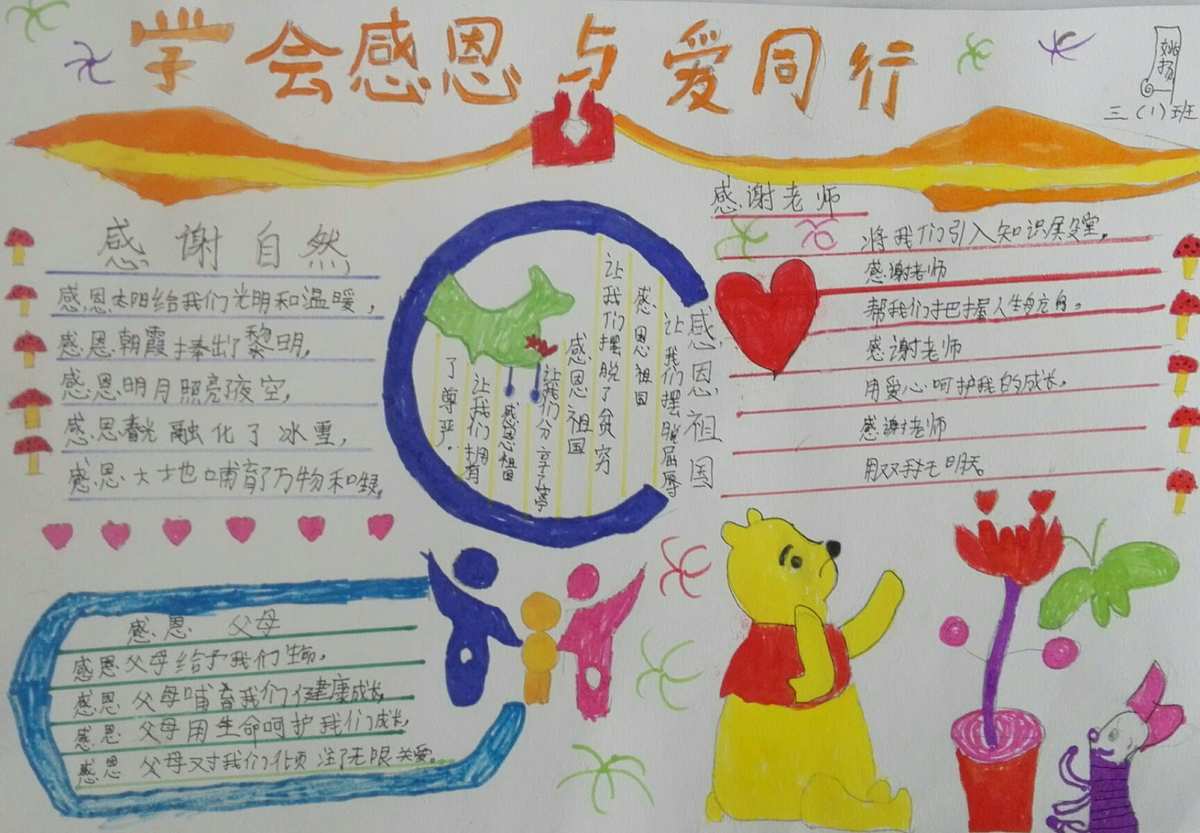 学会感恩与爱同行
姚扬
三(1)班
感谢自然
感恩太阳给我们光明和温暖,
感恩朝霞捧出了黎明,
感恩明月照亮夜空,
感恩春光融化了冰雪,
感恩大地哺育了万物和
感恩祖国
感恩祖国
让我们摆脱屈辱
感恩祖国
让我们摆脱了贫穷
感恩祖国
让我们分享了
感恩祖国
让我们拥有
了尊严.
感谢老师
将我们引入知识殿堂,
感谢老师
帮我们把握人生方向。
感谢老师
用爱心呵护我的成长。
感谢老师
用双手
明天。
感恩 父母
感恩父母给予我们生命,
感恩 父母哺育我们健康成长,
感恩 父母用生命呵护我们成长,
感恩 父母对我们倾注了无限关爱。